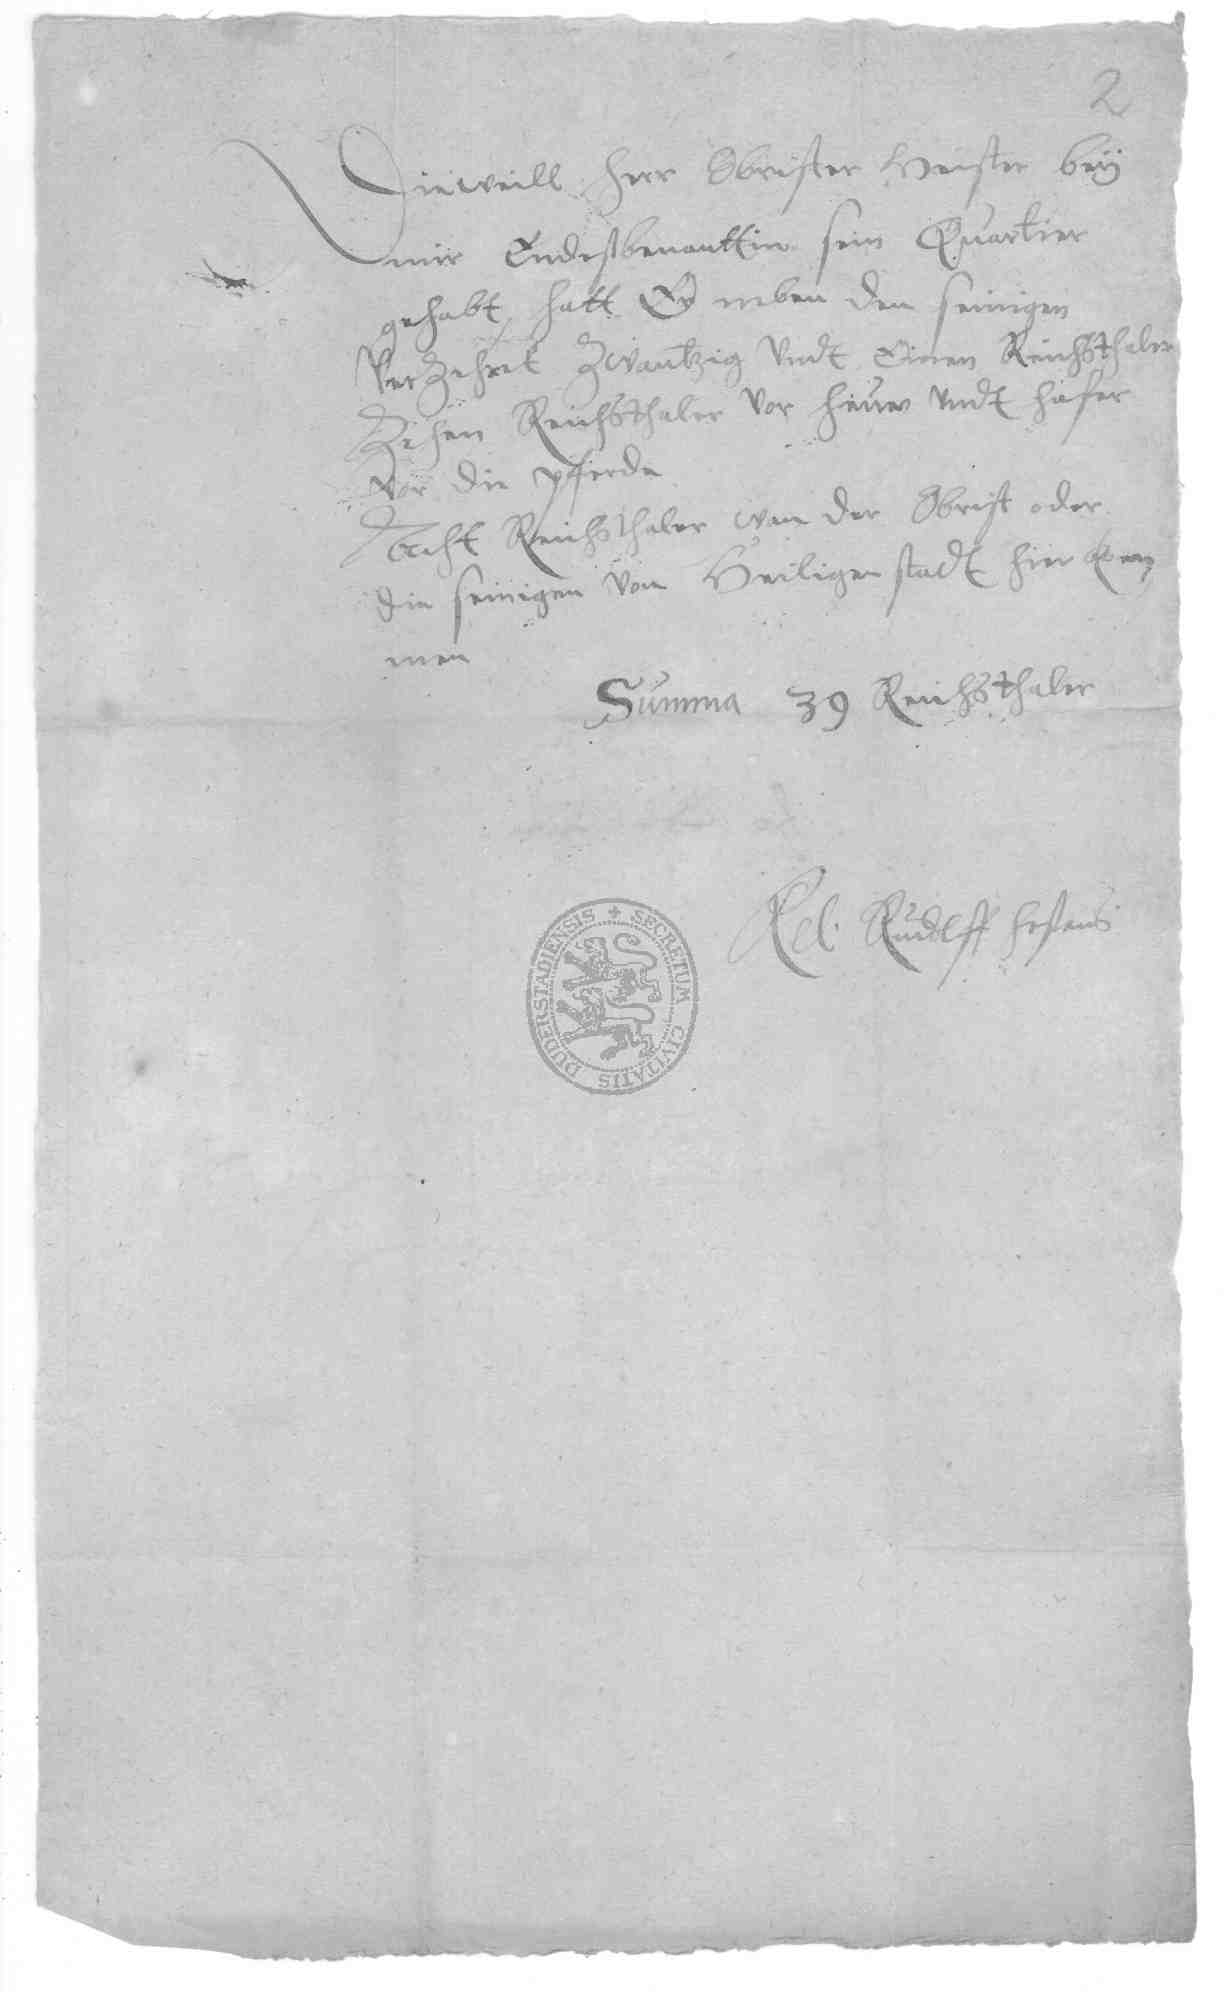 2
Dieweill Herr Obrister Heister beÿ
mir Endesbenanttin sein Quartier
gehabt hatt Er neben den seinigen
Verzehret Zwantzig Undt Einen Reichsthaler
Zehen Reichsthaler vor heuw Undt hafer
vor die pferde
Acht Reichsthaler wan der Obrist oder
die seinigen von Heiligenstadt hier kom
men
Summa 39 Reichsthaler
Rel. Rudolff
SECRETUM CIVITATIS DUDERSTADIENSIS